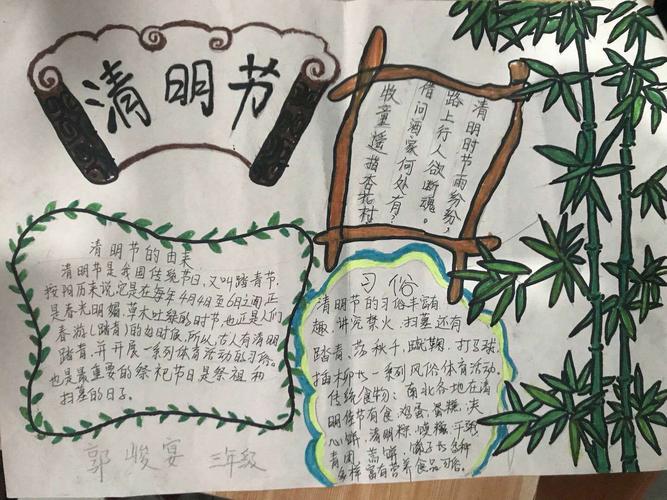 清明节
清明时节雨纷纷,
路上行人欲断魂。
借问酒家何处有?
牧童遥指杏花村
清明节的由来
清明节是我国传统节日,又叫踏青节,
按阳历来说,它是在每年4月4日至6日之间,正
是春光明媚,草木吐绿的时节,也正是人们
春游(踏青)的好时候,所以,古人有清明
踏青,并开展一系列体育活动的习俗。
也是最重要的祭祀节日是祭祖和
扫墓的日子。
习俗
清明节的习俗丰富有
趣,讲究禁火、扫墓还有
踏青、荡秋千、蹴鞠、打马球、
插柳等一系列风俗体育活动。
传统食物:南北各地在清
明佳节有食鸡蛋、蛋糕、夹
心饼、清明粽、馍糍、干粥
青团、
多种
多样富有营养食品习俗。
郭峻宴 三年级